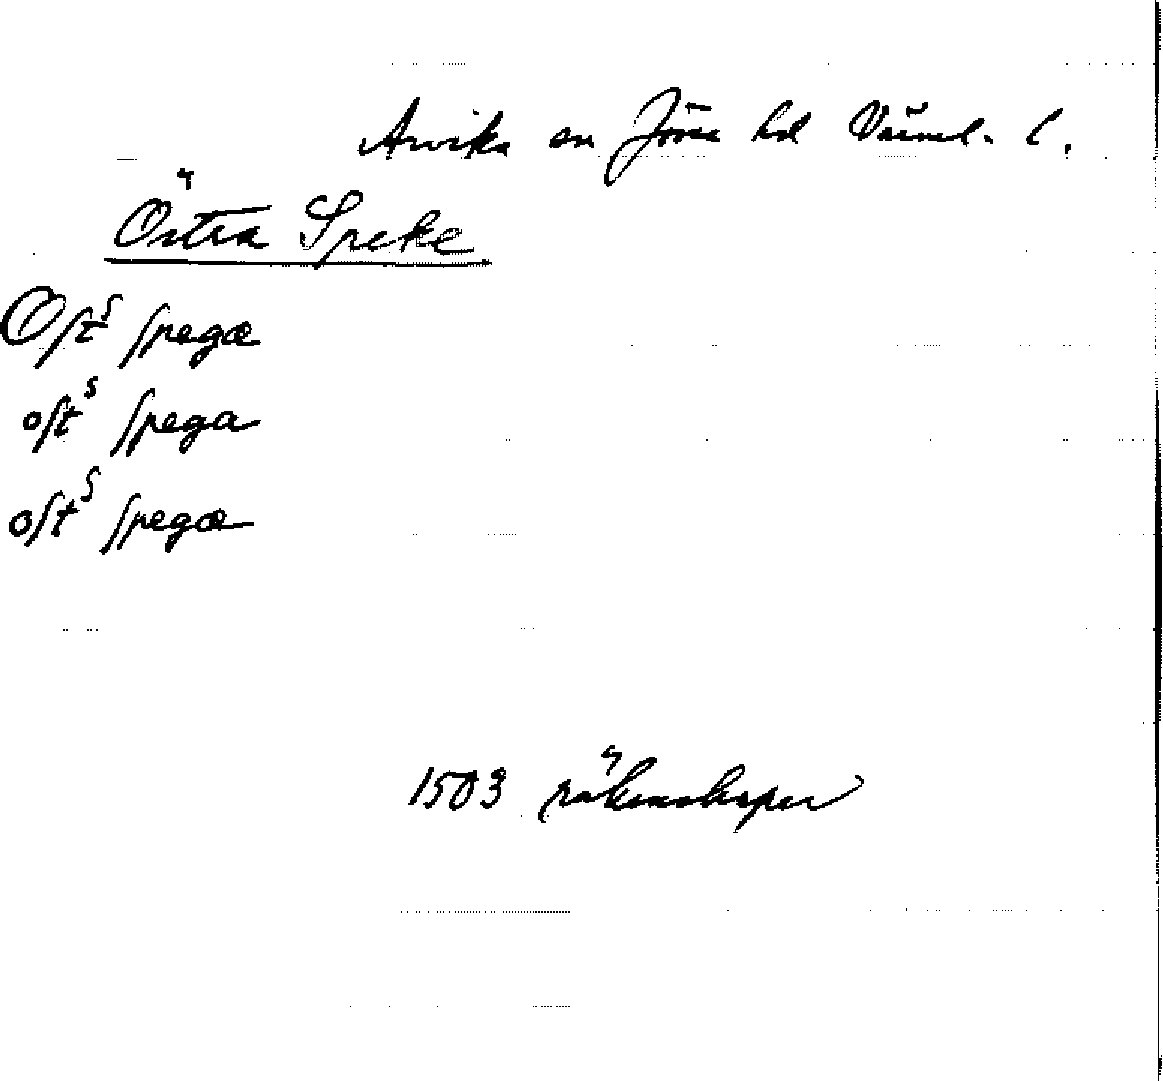 Arvika sn Jösse hd Värml. l.
Östra Speke
Oſtˢ ſpegæ
oſtˢ ſpega
oſtˢ ſpegæ
1503 räkenskaper